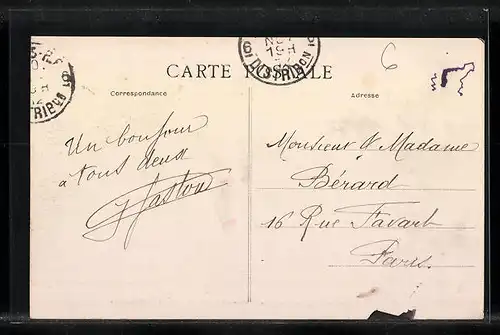 6
CARTE POSTALE
Correspondance
Adresse
Un bonjour
a tous deux
Gaston
Monsieur & Madame
Bérard
16 Rue Favart
Paris.
6
DISTRIBON